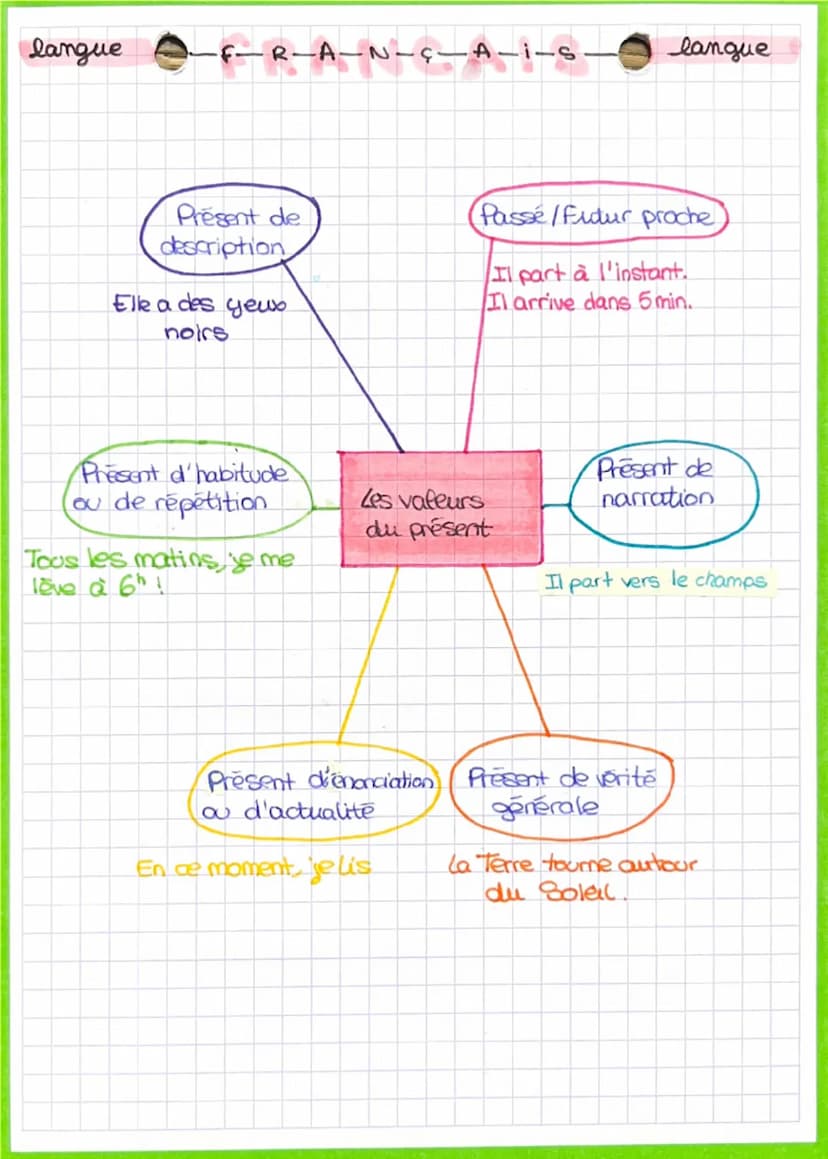 langue F-R-A-N-Ç-A-i-S langue
Présent de
description
Elle a des yeux
noirs
Passé/Futur proche
Il part à l'instant.
Il arrive dans 5 min.
Présent d'habitude
ou de répétition
Tous les matins, je me
lève à 6h !
Les valeurs
du présent
Présent de
narration
Il part vers le champs
Présent d'énonciation
ou d'actualité
En ce moment, je lis
Présent de vérité
générale
La Terre tourne autour
du Soleil.